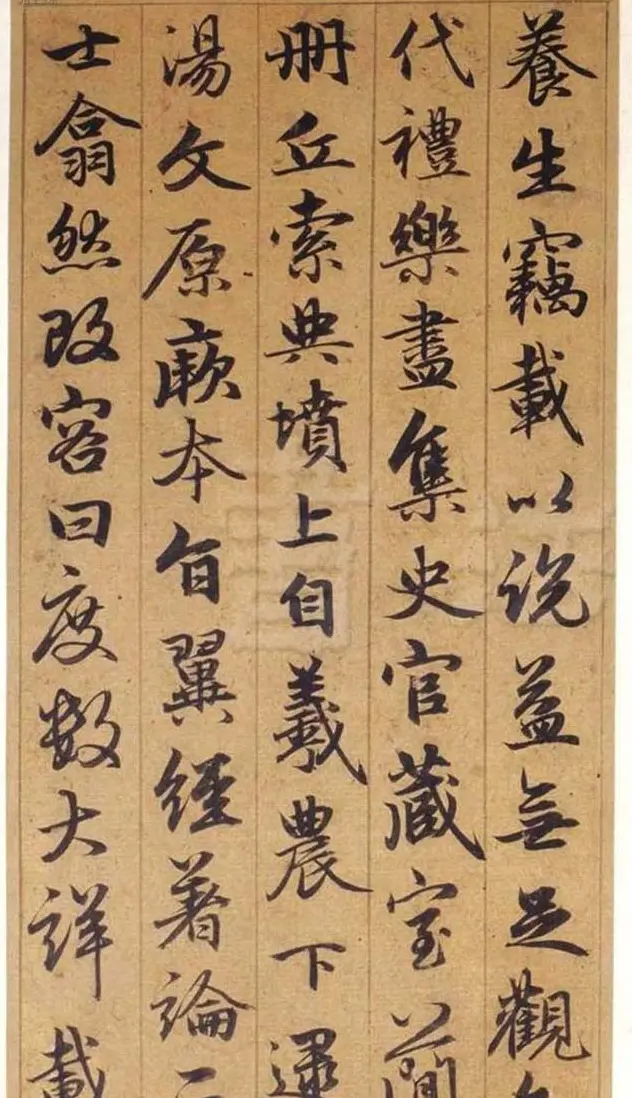 養生竊載以說盖無足觀
代禮樂盡集史官藏室簡
册丘索典墳上自羲農下逮
湯文原厥本旨翼經著論
士翕然改容曰度數大詳載